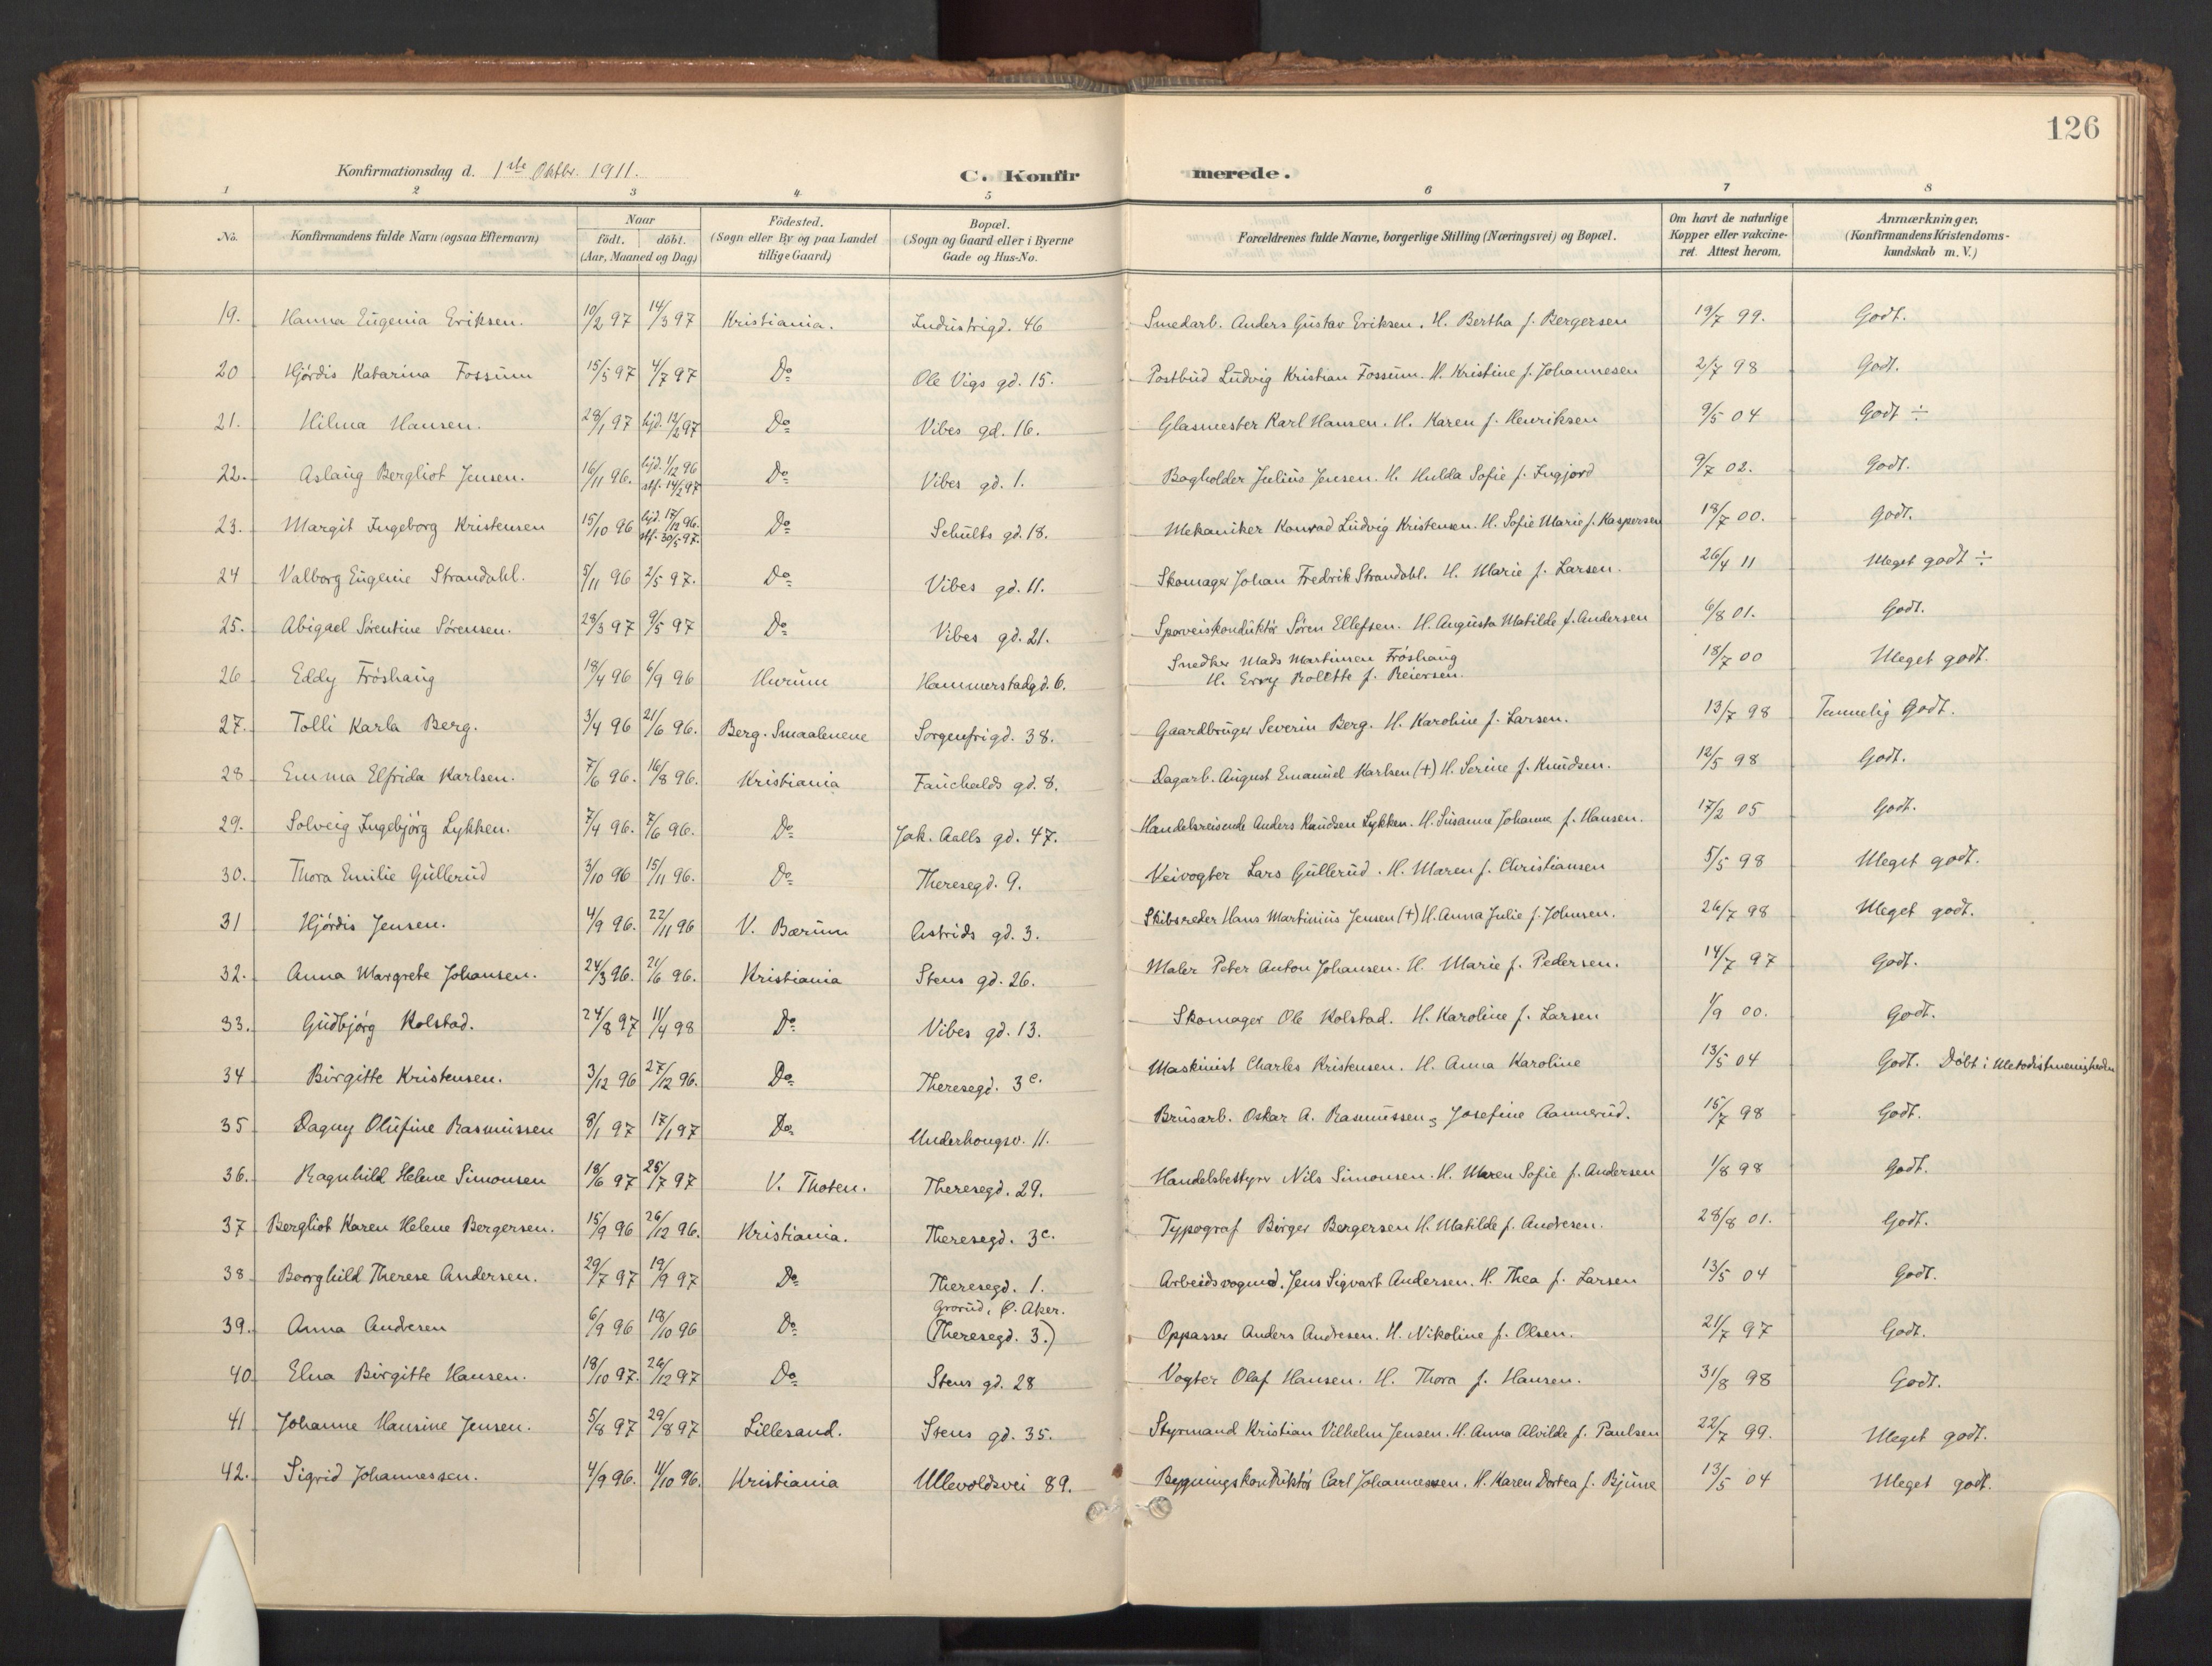 126
Konfirmationsdag d. 1ste Oktbr. 1911. C. Konfirmerede.
1 2 3 4 5 6 7 8
No. Konfirmandens fulde Navn (ogsaa Efternavn) Naar födt. döbt. (Aar, Maaned og Dag) Födested. (Sogn eller By og paa Landet tillige Gaard) Bopæl. (Sogn og Gaard eller i Byerne Gade og Hus-No. Forældrenes fulde Navne, borgerlige Stilling (Næringsvei) og Bopæl. Om havt de naturlige Kopper eller vakcineret. Attest herom. Anmærkninger. (Konfirmandens Kristendomskundskab m. V.)
19. Hanna Eugenia Eriksen. 10/2 97 14/3 97 Kristiania. Industrigd. 46 Smedarb. Anders Gustav Eriksen. H. Bertha f. Bergersen 19/7 99. Godt.
20 Hjördis Katarina Fossum 15/5 97 4/7 97 Do Ole Vigs gd. 15. Postbud Ludvig Kristian Fossum. H. Kristine f. Johannesen 2/7 98 Godt.
21. Hilma Hansen. 28/1 97 hjd. 12/2 97 Do Vibes gd. 16. Glasmester Karl Hansen. H. Karen f. Henriksen 9/5 04 Godt ÷
22. Aslaug Bergliot Jensen. 16/11 96. hjd. 1/12 96 stf. 14/2 97 Do Vibes gd. 1. Bogholder Julius Jensen. H. Hulda Sofie f. Ingjord 9/7 02. Godt.
23. Margit Ingeborg Kristensen 15/10 96 hjd. 17/12 96. stf. 30/5 97. Do Schults gd. 18. Mekaniker Konrad Ludvig Kristensen. H. Sofie Marie f. Kaspersen 18/7 00. Godt.
24 Valborg Eugenie Strandahl. 5/11 96 2/5 97. Do Vibes gd. 11. Skomager Johan Fredrik Strandahl. H. Marie f. Larsen. 26/4 11 Meget godt ÷
25. Abigael Sørentine Sørensen. 28/3 97 9/5 97 Do Vibes gd. 21. Sporveiskonduktör Sören Ellefsen. H. Augusta Matilde f. Andersen 6/8 01. Godt.
26 Eddy Fröshaug 18/4 96 6/9 96 Hurum Hammerstadgd. 6. Snedker Mads Martinsen Fröshaug
H. Ervy Rolette f. Reiersen. 18/7 00 Meget godt.
27. Tolli Karla Berg. 3/4 96 21/6 96. Berg. Smaalenene Sorgenfrigd. 38. Gaardbruger Severin Berg. H. Karoline f. Larsen. 13/7 98 Temmelig Godt.
28 Emma Elfrida Karlsen. 7/6 96. 16/8 96. Kristiania Fauchalds gd. 8. Dagarb. August Emanuel Karlsen (+) H. Serine f. Knudsen. 12/5 98 Godt.
29. Solveig Ingebjörg Lykken. 7/4 96. 7/6 96. Do Jak. Aalls gd. 47. Handelsreisende Anders Knudsen Lykken. H. Susanne Johanne f. Hansen. 17/2 05 Godt.
30. Thora Emilie Gullerud 3/10 96 15/11 96. Do Theresegd. 9. Veivogter Lars Gullerud. H. Maren f. Christiansen 5/5 98 Meget godt.
31 Hjördis Jensen. 4/9 96. 22/11 96 V. Bærum Astrids gd. 3. Skibsreder Hans Martinius Jensen (+) H. Anna Julie f. Johnsen. 26/7 98 Meget godt.
32. Anna Margrete Johansen. 24/3 96. 21/6 96. Kristiania Stens gd. 26. Maler Peter Anton Johansen. H. Marie f. Pedersen. 14/7 97 Godt.
33. Gudbjörg Kolstad. 24/8 97 11/4 98 Do Vibes gd. 13. Skomager Ole Kolstad. H. Karoline f. Larsen 1/9 00. Godt.
34 Birgitte Kristensen. 3/12 96 27/12 96. Do Theresegd. 3c. Maskinist Charles Kristensen. H. Anna Karoline 13/5 04 Godt. Döbt i Metodistmenigheden
35 Dagny Olufine Rasmussen 8/1 97 17/1 97 Do Underhougsv. 11. Brusarb. Oskar A. Rasmussen, Josefine Aannerud. 15/7 98 Godt.
36. Ragnhild Helene Simonsen 18/6 97 25/7 97 V. Thoten. Theresegd. 29. Handelsbestyrer Nils Simonsen. H. Maren Sofie f. Andersen 1/8 98 Godt.
37 Bergliot Karen Helene Bergersen. 15/9 96 26/12 96. Kristiania. Theresegd. 3c. Typograf Birger Bergersen H. Matilde f. Andresen. 28/8 01. Godt.
38 Borghild Therese Andersen. 29/7 97 19/9 97 Do Theresegd. 1. Arbeidsvogmd. Jens Sigvart Andersen. H. Thea f. Larsen 13/5 04 Godt.
39. Anna Andresen 6/9 96 18/10 96 Do Grorud, Ø. Aker.
(Theresegd. 3.) Oppasser Anders Andresen. H. Nikoline f. Olsen. 21/7 97 Godt.
40 Elna Birgitte Hansen. 18/10 97. 26/12 97 Do Stens gd. 28 Vogter Olaf Hansen. H. Thora f. Hansen. 31/8 98 Godt.
41 Johanne Hansine Jensen. 5/8 97 29/8 97 Lillesand. Stens gd. 35. Styrmand Kristian Vilhelm Jensen. H. Anna Alvilde f. Paulsen 22/7 99. Meget godt.
42. Sigrid Johannessen. 4/9 96. 4/10 96. Kristiania Ullevoldsvei 89. Bygningskonduktör Carl Johannessen. H. Karen Dortea f. Bjune 13/5 04 Meget godt.